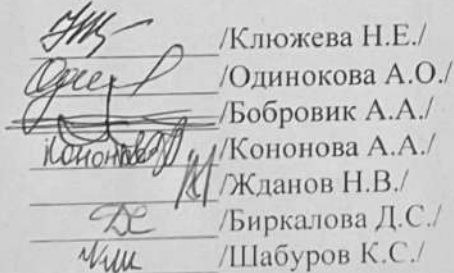 /Клюжева Н.Е./
/Одинокова А.О./
/Бобровик А.А./
Кононова /Кононова А.А./
/Жданов Н.В./
/Биркалова Д.С./
/Шабуров К.С./